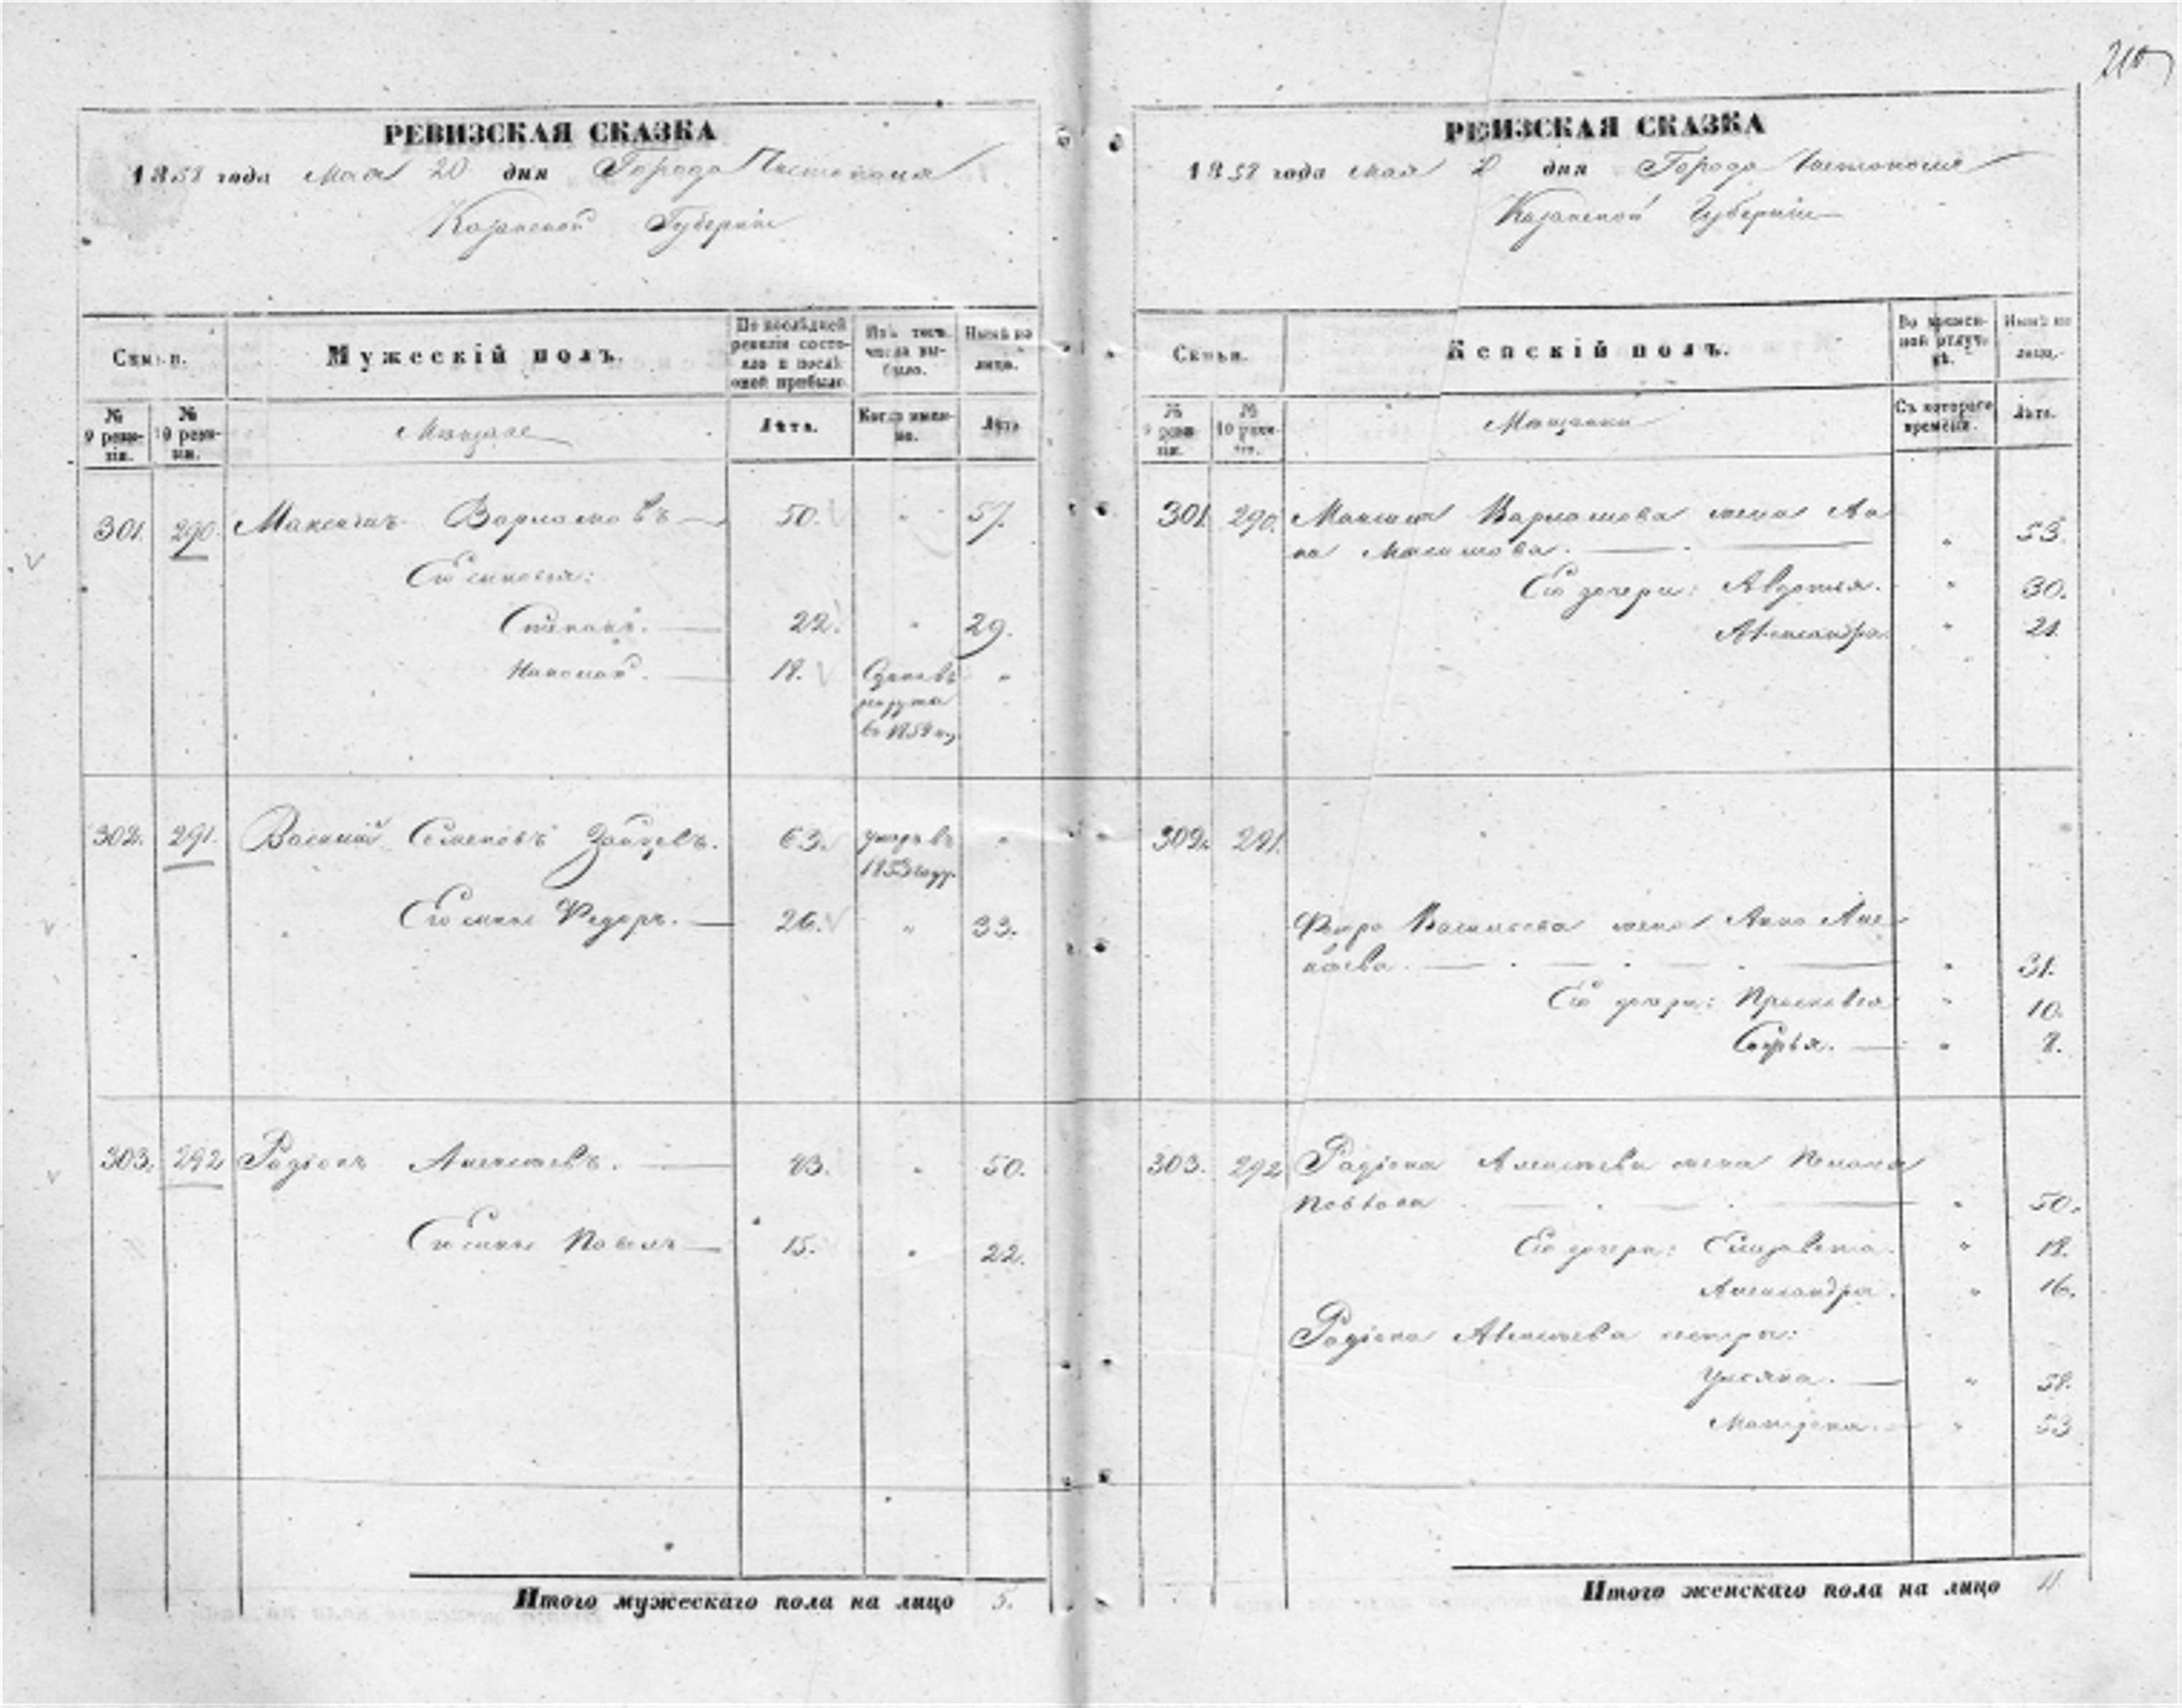 210
РЕВИЗСКАЯ СКАЗКА
1858 года Мая 20 дня Города Чистополя
Казанской Губерніи
Семьи.
Мужескій полъ.
По послѣдней ревизіи состояло и послѣ оной прибыло.
Изъ того числа выбыло.
Нынѣ на лицо.
№ 9 ревизіи.
№ 10 ревизіи.
Мѣщане
Лѣта.
Когда именно.
Лѣта
301. 290. Максимъ Варламовъ 50. " 57.
Его сыновья:
Степанъ. 22. " 29.
Николай. 18. Сданъ въ "
рекруты
въ 1854 году
302. 291. Василий Семеновъ Зайцевъ. 63. умеръ въ "
1853 году.
Его сынъ Федоръ. 26. " 33.
303. 292 Родіонъ Алексѣевъ. 43. " 50.
Его сынъ Павелъ 15. " 22.
Итого мужескаго пола на лицо 5.
РЕИЗСКАЯ СКАЗКА
1858 года мая 20 дня Города Чистополя
Казанской Губерніи
Семьи.
Женскій полъ.
Во временной отлучкѣ.
Нынѣ на лицо.
№ 9 ревизіи.
№ 10 ревизіи.
Мѣщанки
Съ котораго времени.
Лѣта.
301. 290. Максима Варламова жена Ан
на " 53.
Его дочери: Авдотья. " 30.
Александра. " 21.
302. 291.
Федора Васильева жена Анна Але
" 31.
Его дочери: Прасковья " 10.
Софья. " 8.
303. 292 Родіона Алексѣева жена
" 50.
Его дочери: Елизавета. " 18.
Александра. " 16.
Родіона Алексѣева сестры:
Ульяна. " 58.
Матрена. " 53
Итого женскаго пола на лицо 11.